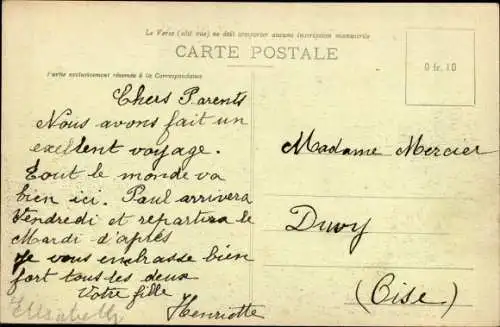 Le Verso (côté vue) ne doit comporter aucune inscription manuscrite
CARTE POSTALE
Partie exclusivement réservée à la Correspondance
0 fr. 10
Chers Parents
Nous avons fait un
exellent voyage.
Tout le monde va
bien ici. Paul arrivera
Vendredi et repartira le
Mardi d'après
Je vous embrasse bien
fort tous les deux
Votre fille
Henriette
Elisabeth
Madame Mercier
Duvy
(Oise)